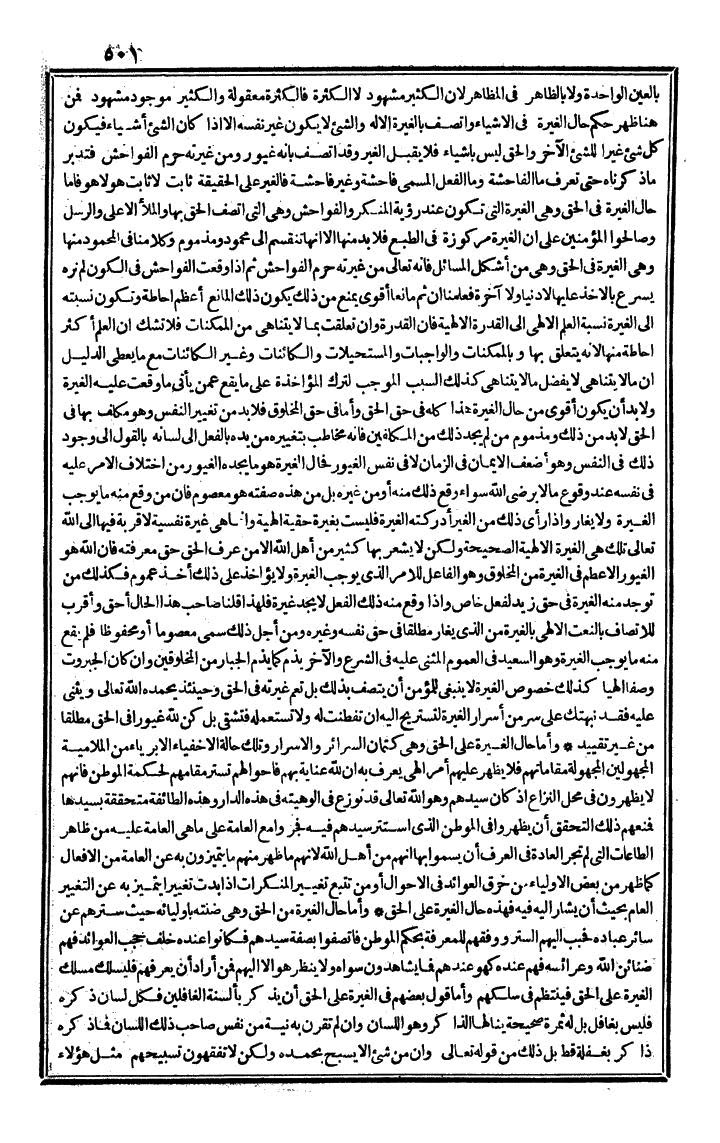 ٥٠١
بالعين الواحدة ولا بالظاهر فى المظاهر لان الكثير مشهود لا الكثرة فالكثرة معقولة والكثير موجود مشهود فمن
هنا ظهر حكم حال الغيرة فى الاشياء واتصف بالغيرة الاله والشئ لا يكون غير نفسه الا اذا كان الشئ أشياء فيكون
كل شئ غيرا للشئ الآخر والحق ليس باشياء فلا يقبل الغير وقد اتصف بانه غيور ومن غيرته حرم الفواحش فتدبر
ماذكرناه حتى تعرف ما الفاحشة وما الفعل المسمى فاحشة وغير فاحشة فالغير على الحقيقة ثابت لا ثابت هو لا هو فاما
حال الغيرة فى الحق وهى الغيرة التى تكون عند رؤية المنكر والفواحش وهى التى اتصف الحق بها والملأ الاعلى والرسل
وصالحوا المؤمنين على ان الغيرة مركوزة فى الطبع فلا بد منها الا انها تنقسم الى محمود ومذموم وكلامنا فى المحمود منها
وهى الغيرة فى الحق وهى من أشكل المسائل فانه تعالى من غيرته حرم الفواحش ثم اذا وقعت الفواحش فى الكون لم نره
يسرع بالاخذ عليها لا دنيا ولا آخرة فعلمنا ان ثم مانعا أقوى يمنع من ذلك يكون ذلك المانع أعظم احاطة وتكون نسبته
الى الغيرة نسبة العلم الالهى الى القدرة الالهية فان القدرة وان تعلقت بما لا يتناهى من الممكنات فلا تشك ان العلم أكثر
احاطة منها لانه يتعلق بها و بالممكنات والواجبات والمستحيلات والكائنات وغير الكائنات مع ما يعطى الدليل
ان مالا يتناهى لا يفضل مالا يتناهى كذلك السبب الموجب لترك المؤاخذة على ما يقع عمن يأتى ما وقعت عليه الغيرة
ولا بد أن يكون أقوى من حال الغيرة هذا كله فى حق الحق وأما فى حق المخلوق فلا بد من تغيير النفس وهو مكلف بها فى
الحق لا بد من ذلك ومذموم من لم يجد ذلك من المكلفين فانه مخاطب بتغييره من يده بالفعل الى لسانه بالقول الى وجود
ذلك فى النفس وهو أضعف الايمان فى الزمان لا فى نفس الغيور فحال الغيرة هو ما يجده الغيور من اختلاف الامر عليه
فى نفسه عند وقوع مالا يرضى الله سواء وقع ذلك منه أو من غيره بل من هذه صفته هو معصوم فان من وقع منه ما يوجب
الغيرة ولا يغار واذا رأى ذلك من الغير أدركته الغيرة فليست بغيرة حقية الهية وانما هى غيرة نفسية لا قربة فيها الى الله
تعالى تلك هى الغيرة الالهية الصحيحة ولكن لا يشعر بها كثير من أهل الله الا من عرف الحق حق معرفته فان الله هو
الغيور الاعظم فى الغيرة من المخلوق وهو الفاعل للامر الذى يوجب الغيرة ولا يؤاخذ على ذلك أخذ عموم فكذلك من
توجد منه الغيرة فى حق زيد لفعل خاص واذا وقع منه ذلك الفعل لا يجد غيرة فلهذا قلنا صاحب هذا الحال أحق وأقرب
للاتصاف بالنعت الالهى بالغيرة من الذى يغار مطلقا فى حق نفسه وغيره ومن أجل ذلك سمى معصوما أو محفوظا فلم يقع
منه ما يوجب الغيرة وهو السعيد فى العموم المثنى عليه فى الشرع والآخر يذم كما يذم الجبار من المخلوقين وان كان الجبروت
وصفا الهيا كذلك خصوص الغيرة لا ينبغى للمؤمن أن يتصف بذلك بل تعم غيرته فى الحق وحينئذ يحمده الله تعالى ويثنى
عليه فقد نبهتك على سر من أسرار الغيرة لتستريح اليه ان تفطنت له ولا تستعمله فتشقى بل كن لله غيورا فى الحق مطلقا
من غير تقييد * وأما حال الغيرة على الحق وهى كتمان السرائر والاسرار وتلك حالة الاخفياء الابرياء من الملامية
المجهولين المجهولة مقاماتهم فلا يظهر عليهم أمر الهى يعرف به ان لله عناية بهم فاحوالهم تستر مقامهم لحكمة الموطن فانهم
لا يظهرون فى محل النزاع اذ كان سيدهم وهو الله تعالى قد نوزع فى الوهيته فى هذه الدار وهذه الطائفة متحققة بسيدها
فمنعهم ذلك التحقق أن يظهروا فى الموطن الذى استتر سيدهم فيه فجروا مع العامة على ما هى العامة عليه من ظاهر
الطاعات التى لم تجر العادة فى العرف أن يسموا بها انهم من أهل الله لانهم ما ظهر منهم ما يتميزون به عن العامة من الافعال
كما ظهر من بعض الاولياء من خرق العوائد فى الاحوال أو من تتبع تغيير المنكرات اذا بدت تغييرا يتميز به عن التغيير
العام بحيث أن يشار اليه فيه فهذه حال الغيرة على الحق * وأما حال الغيرة من الحق وهى ضنته باوليائه حيث سترهم عن
سائر عباده فحبب اليهم الستر ووفقهم للمعرفة بحكم الموطن فاتصفوا بصفة سيدهم فكانوا عنده خلف حجب العوائد فهم
ضنائن الله وعرائسه فهم عنده كهو عندهم فما يشاهدون سواه ولا ينظر هو الا اليهم فمن أراد أن يعرفهم فليسلك مسلك
الغيرة على الحق فينتظم فى سلكهم وأما قول بعضهم فى الغيرة على الحق أن يذكر بألسنة الغافلين فكل لسان ذكره
فليس بغافل بل له ثمرة صحيحة ينالها الذاكر وهو اللسان وان لم تقرن به نية من نفس صاحب ذلك اللسان فما ذكره
ذاكر بغفلة قط بل ذلك من قوله تعالى وان من شئ الا يسبح بحمده ولكن لا تفقهون تسبيحهم مثل هؤلاء